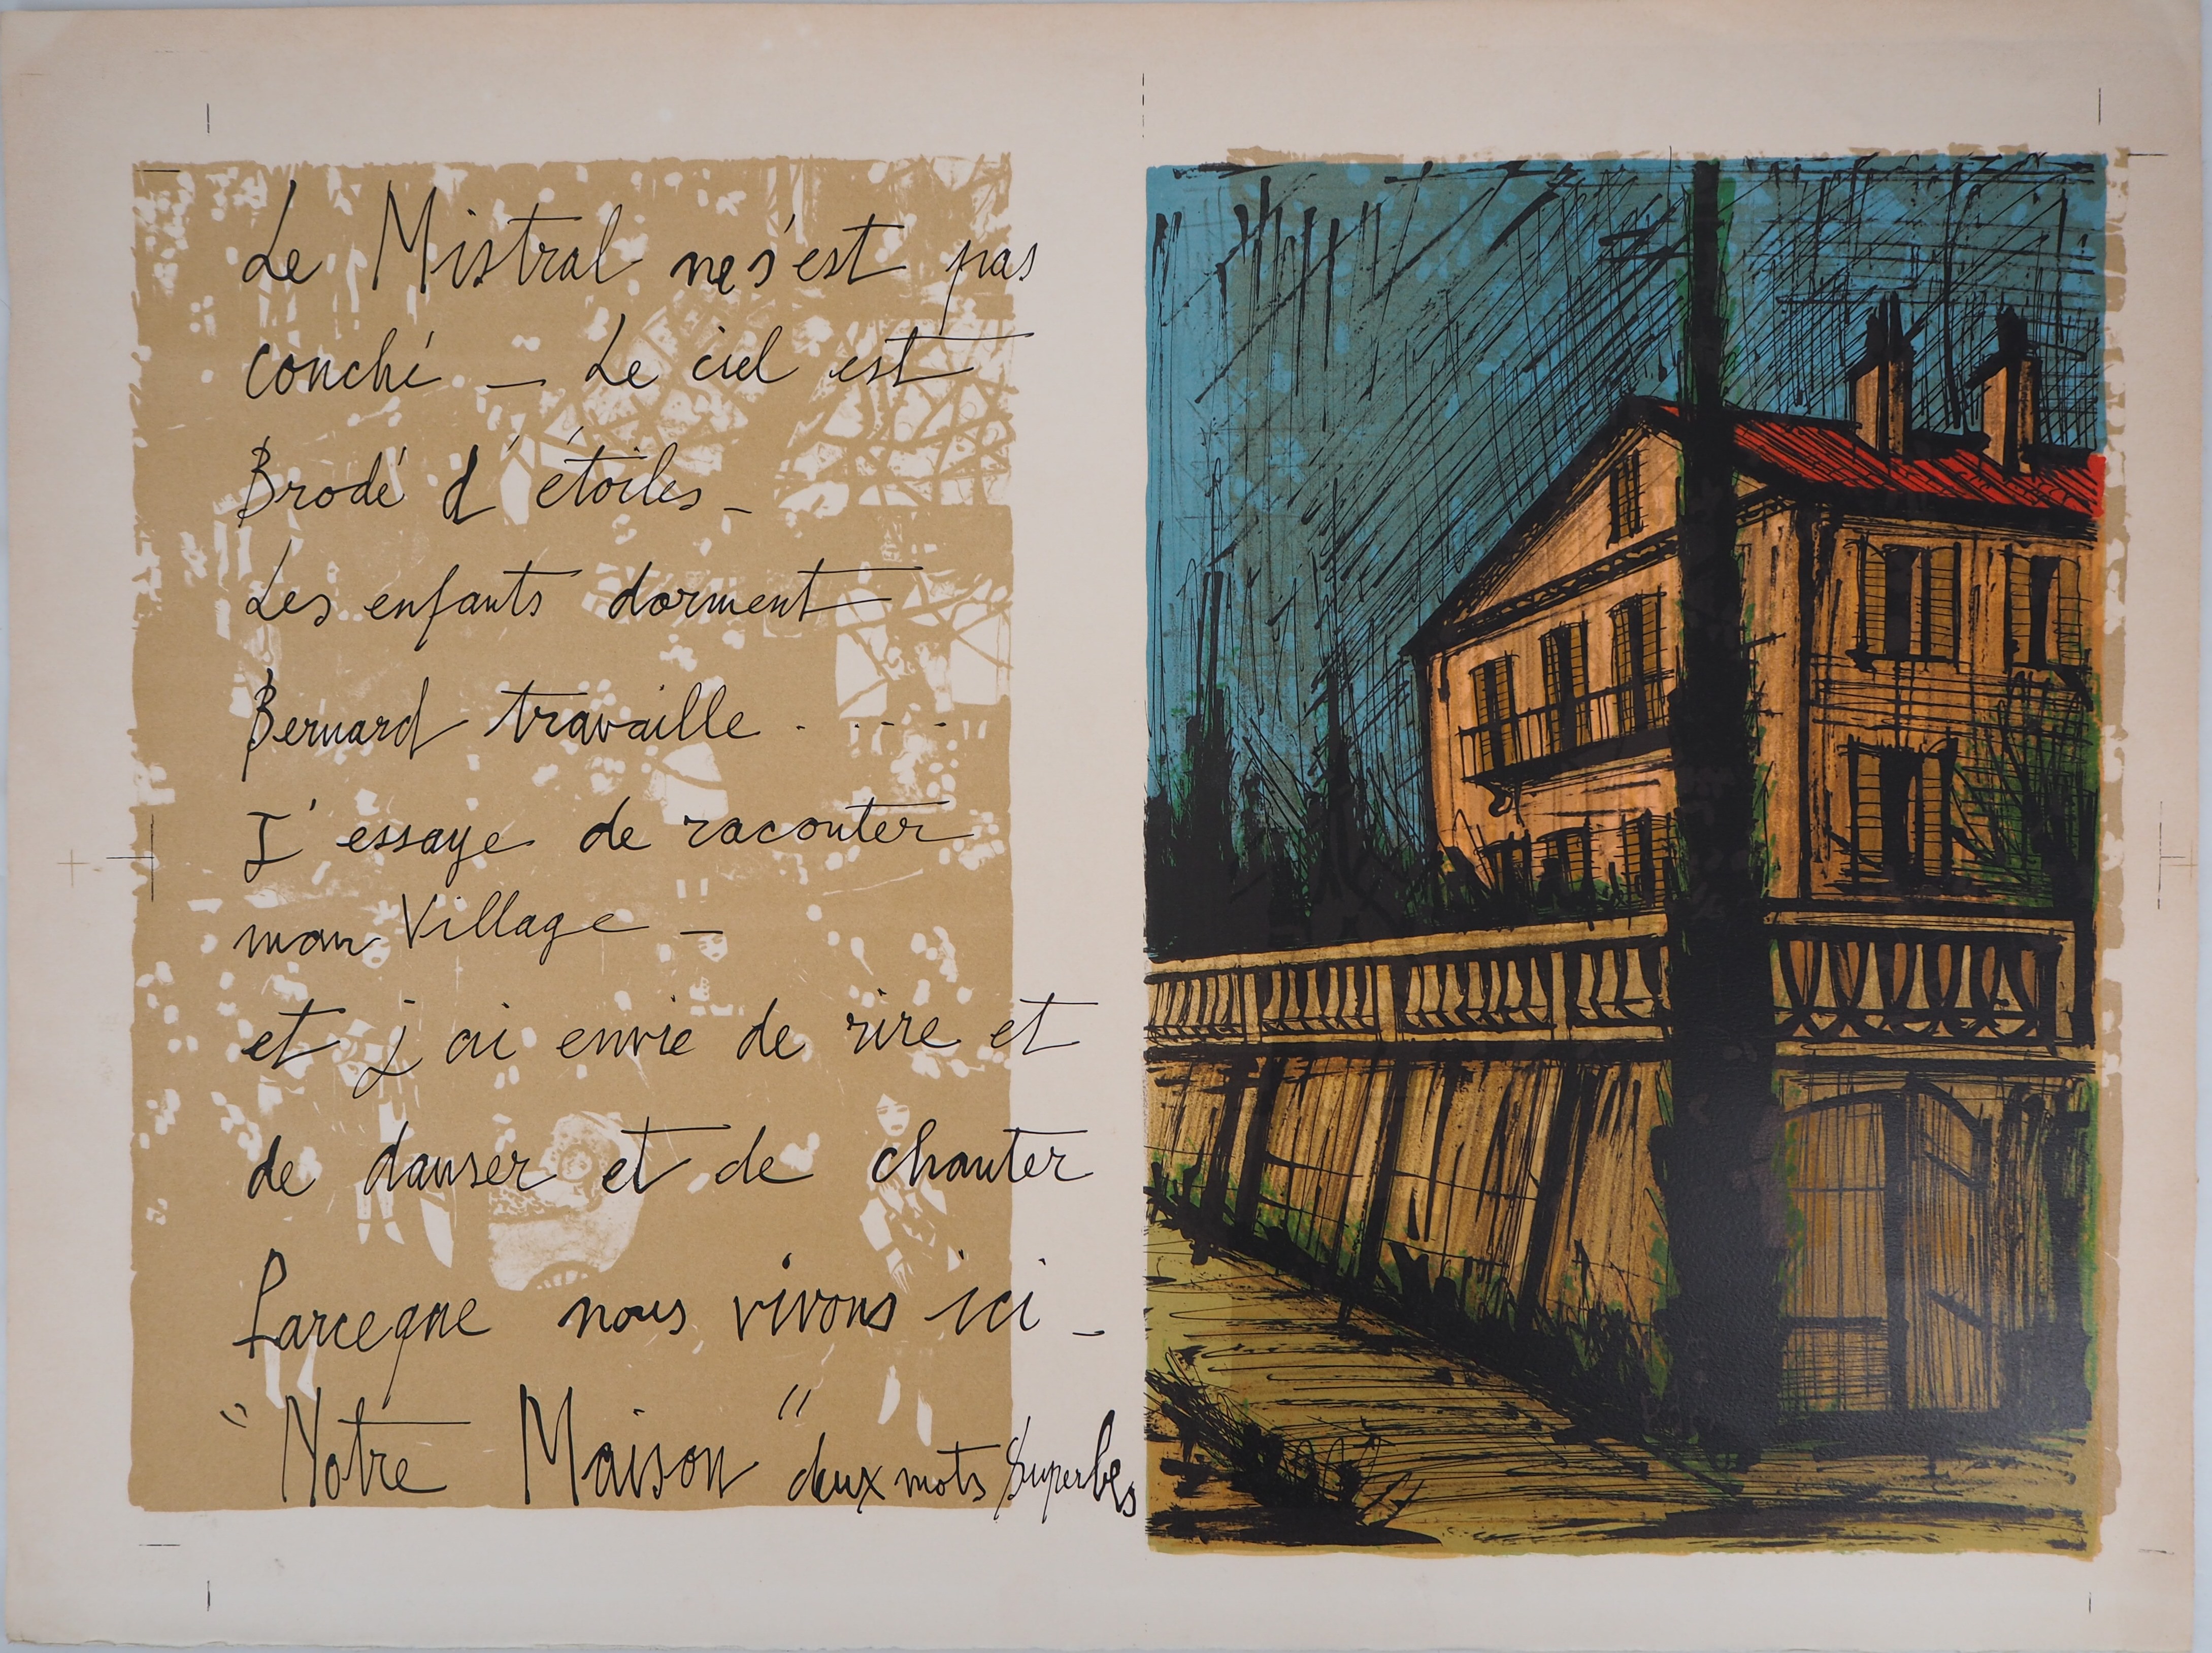 Le Mistral ne s'est pas
couché _ Le ciel est
Brodé d'étoiles _
Les enfants dorment
Bernard travaille . . . . .
J'essaye de raconter
mon Village _
et j'ai envie de rire et
de danser et de chanter
Parceque nous vivons ici _
"Notre Maison" deux mots Superbes